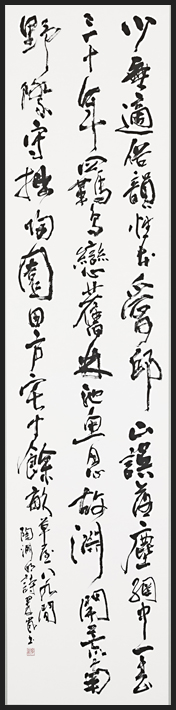 少無適俗韻性本愛邱山誤落塵網中一去
三十年羈鳥戀舊林池魚思故淵開荒南
野際守拙歸園田方宅十餘畝草屋八九間
陶淵明詩